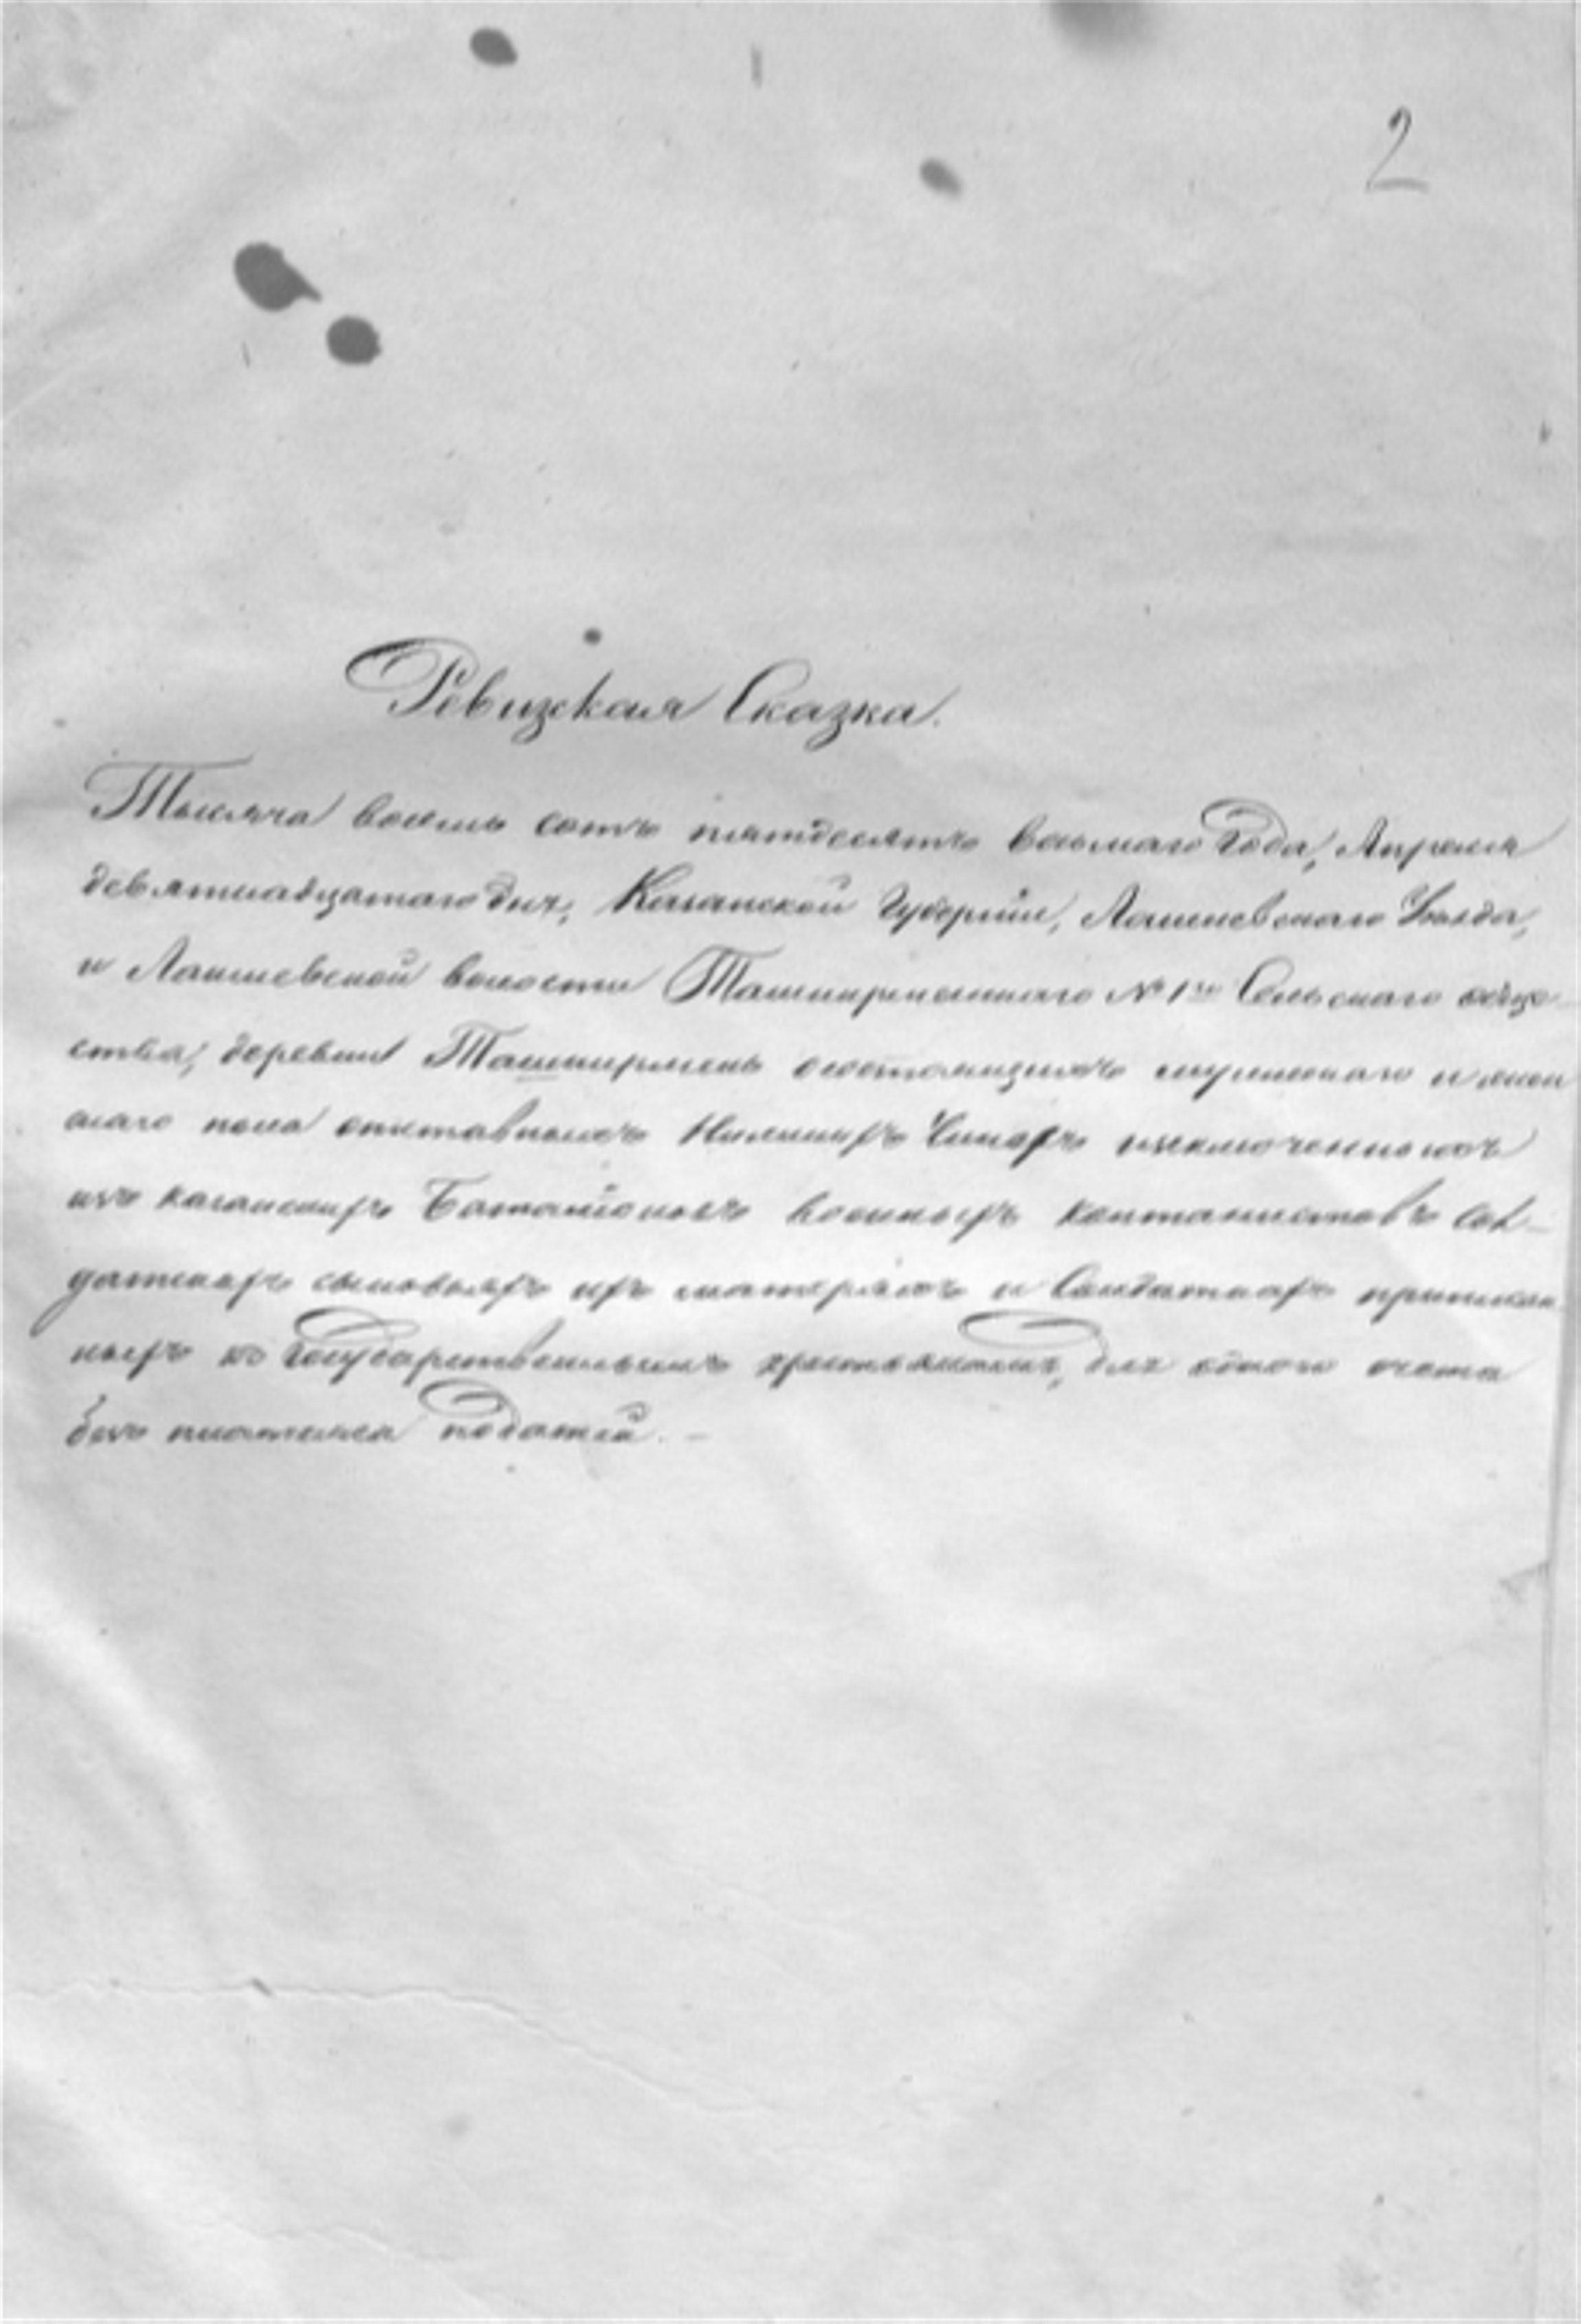 2
Ревизская Сказка.
Тысяча восемь сотъ пятдесятъ восьмаго Года, Апреля
девятнадцатаго дня, Казанской Губернии, Лаишевскаго Уезда,
и Лаишевской волости Ташкирменскаго № 1го Сельскаго обще-
ства, деревни Ташкирмень о состоящихъ мужескаго и жен
скаго пола отставныхъ Нижнихъ Чинахъ исключенныхъ
изъ казанскихъ Баталіоновъ военныхъ кантонистовъ Сол-
датскихъ сыновьяхъ ихъ матеряхъ и Солдаткахъ приписан
ныхъ къ Государственнымъ крестьянамъ, для одного счета
безъ платежа податей. –